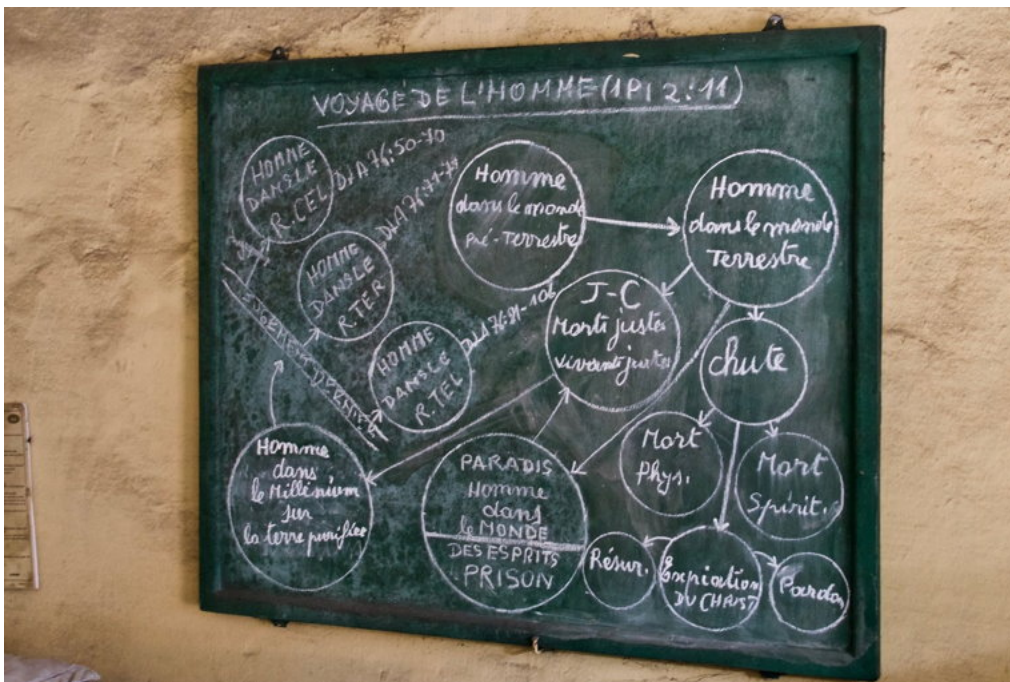 VOYAGE DE L'HOMME (1PI 2:11)
HOMME
DANS LE
R.CEL
D/A 76:50-70
HOMME
DANS LE
R.TER
D/A 76:71-79
HOMME
DANS LE
R.TEL
D/A 76:81-106
JUGEMENT DERNIER
Homme
dans le monde
Pré-Terrestre
Homme
dans le monde
Terrestre
J-C
Morts justes
vivants justes
chute
Mort
Phys.
Mort
Spirit.
Homme
dans
le Millénium
sur
la terre purifiée
PARADIS
Homme
dans
le MONDE
DES ESPRITS
PRISON
Résur.
Expiation
DU CHRIST
Pardon